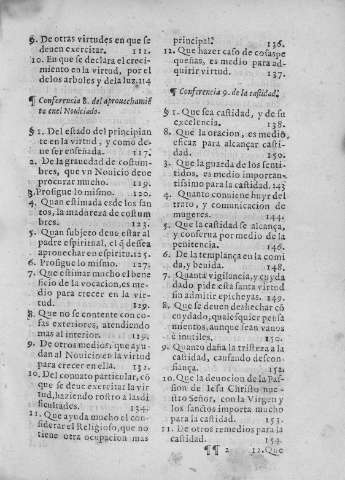 9. De otras virtudes en que se
deuen exercitar. 111.
10. En que se declara el creci-
miento en la virtud, por el
de los arboles y de la luz. 114
¶ Conferencia 8. del aprouechamiē
to en el Nouiciado.
§ 1. Del estado del principian
te en la virtud, y como de-
ue ser enseñada. 117.
2. De la grauedad de costum-
bres, que vn Nouicio deue
procurar mucho. 119.
3. Prosigue lo mismo. 120.
4. Quan estimada es de los san
tos, la madureza de costum
bres. 123.
5. Quan subjeto deue estar al
padre espiritual, el q̄ desea
aprouechar en espiritu. 125.
6. Prosigue lo mismo. 127.
7. Que estimar mucho el bene
ficio de la vocacion, es me-
dio para crecer en la vir-
tud. 129.
8. Que no se contente con co-
sas exteriores, atendiendo
mas al interior. 129.
9. De otros medios, que ayu-
dan al Nouicio en la virtud
para crecer en ella. 132.
10. Del conuato particular, cō
que se deue exercitar la vir
tud, haziendo rostro a las di
ficultades. 134.
11. Que ayuda mucho el con-
siderar el Religioso, que no
tiene otra ocupacion mas
principal. 136.
12. Que hazer caso de cosas pe
queñas, es medio para ad-
quirir virtud. 137.
¶ Conferencia 9. de la castidad.
§ 1. Que sea castidad, y de su
excelencia. 138.
8. Que la oracion, es medio
eficaz para alcançar casti-
dad. 150.
3. Que la guarda de los senti-
tidos, es medio importan-
tissimo para la castidad. 143
4. Quanto conuiene huyr del
trato, y comunicacion de
mugeres. 144.
5. Que la castidad se alcança,
y conserua por medio de la
penitencia. 146.
6. De la templança en la comi
da, y beuida. 148.
7. Quanta vigilancia, y cuyda
dado pide esta santa virtud
sin admitir epicheyas. 149.
8. Que se deuen deshechar cō
cuydado, qualesquier pensa
mientos, aunque sean vanos
e inutiles. 150.
9. Quanto daña la tristeza a la
castidad, causando descon-
fiança. 152.
10. Que la deuocion de la Pas-
sion de Iesu Christo nue-
stro Señor, con la Virgen y
los sanctos importa mucho
para la castidad. 153.
11. De otros remedios para la
castidad. 154.
¶¶ 2 12. Que